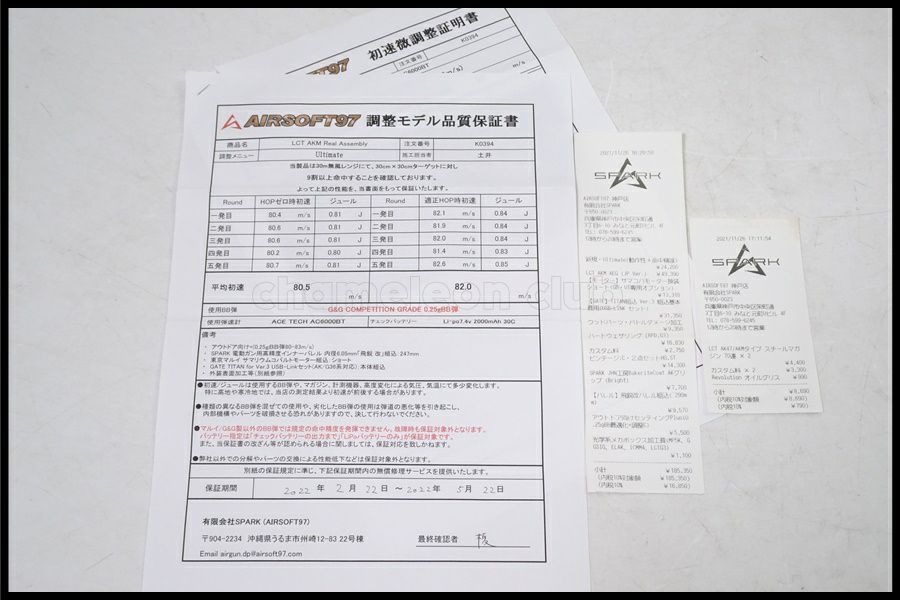 初速微調整証明書
注文番号 K0394
AIRSOFT97 調整モデル品質保証書
商品名 LCT AKM Real Assembly 注文番号 K0394
調整メニュー Ultimate 施工担当者 土井
当製品は30m無風レンジにて、30cm×30cmターゲットに対し
9割以上命中することを確認しております。
よって上記の性能を、当書面をもって保証いたします。
Round HOPゼロ時初速 ジュール Round 適正HOP時初速 ジュール
一発目 80.4 m/s 0.81 J 一発目 82.1 m/s 0.84 J
二発目 80.6 m/s 0.81 J 二発目 81.9 m/s 0.84 J
三発目 80.6 m/s 0.81 J 三発目 82.0 m/s 0.84 J
四発目 80.2 m/s 0.80 J 四発目 81.4 m/s 0.83 J
五発目 80.7 m/s 0.81 J 五発目 82.6 m/s 0.85 J
平均初速 80.5 m/s 82.0 m/s
使用BB弾 G&G COMPETITION GRADE 0.25gBB弾
使用弾速計 ACE TECH AC6000BT チェックバッテリー Li-po7.4v 2000mAh 30C
備考
・ アウトドア向け<0.25gBB弾80-83m/s)
・ SPARK 電動ガン用高精度インナーバレル 内径6.05mm「飛龍 改」組込：247mm
・ 東京マルイ サマリウムコバルトモーター組込：ショート
・ GATE TITAN for Ver.3 USB-Linkセット(AK/G36系対応)：本体組込
・ 外装表面加工等(別紙参照)
●初速/ジュールは使用するBB弾や、マガジン、計測機器、高度変化による気圧、気温にて多少変化します。
特に高地や寒冷地では、当店の測定結果より初速が前後する場合があります。
●種類の異なるBB弾を混ぜての使用や、劣化したBB弾の使用は弾道の悪化等を引き起こし、
内部機構やパーツを破損させる恐れがありますので、決して行わないでください。
●マルイ/G&G製以外のBB弾では規定の命中精度を発揮できません。故障時も保証対象外となります。
バッテリー指定は「チェックバッテリーの出力まで」「LiPoバッテリーのみ」が保証対象です。
また、当保証書の改ざん等が認められる場合に関しましては、保証対応を致しかねます。
●弊社以外での分解やパーツの交換による性能低下などは保証対象外となります。
別紙の保証規定に準じ、下記保証期間内の無償修理サービスを提供いたします。
保証期間 2022 年 2 月 22 日 ～ 2022 年 5 月 22 日
有限会社SPARK (AIRSOFT97)
〒904-2234 沖縄県うるま市州崎12-83 22号棟
Email airgun.dp@airsoft97.com
最終確認者
SPARK
AIRSOFT97 神戸店
有限会社SPARK
〒650-0023
兵庫県神戸市中央区栄町通
TEL: 078-599-6245
￥24,200
LCT AKM AEG (JP Ver.)
￥49,390
￥31,350
￥9,350
￥16,830
カスタム料
￥2,750
￥3,300
￥7,700
￥9,570
￥5,500
￥1,100
小計 ￥185,350
(内税10%対象額 ￥185,350)
(内税10% ￥16,850)
2021/11/26 17:11:54
SPARK
AIRSOFT97 神戸店
有限会社SPARK
〒650-0023
兵庫県神戸市中央区栄町通
TEL: 078-599-6245
LCT AK47/AKMタイプ スチールマガ
ジン 70連 × 2
￥4,400
カスタム料 × 2 ￥3,300
Revolution オイルグリス ￥990
小計 ￥8,690
(内税10%対象額 ￥8,690)
(内税10% ￥790)
chameleon club